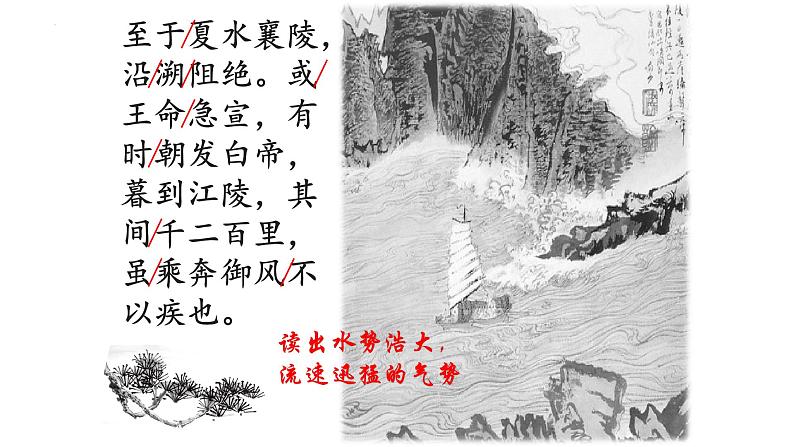 至于/夏水襄陵，
沿/溯/阻绝。或/
王命/急宣，有
时/朝发白帝，
暮到江陵，其
间/千二百里，
虽/乘奔御风/不
以疾也。
读出水势浩大，
流速迅猛的气势